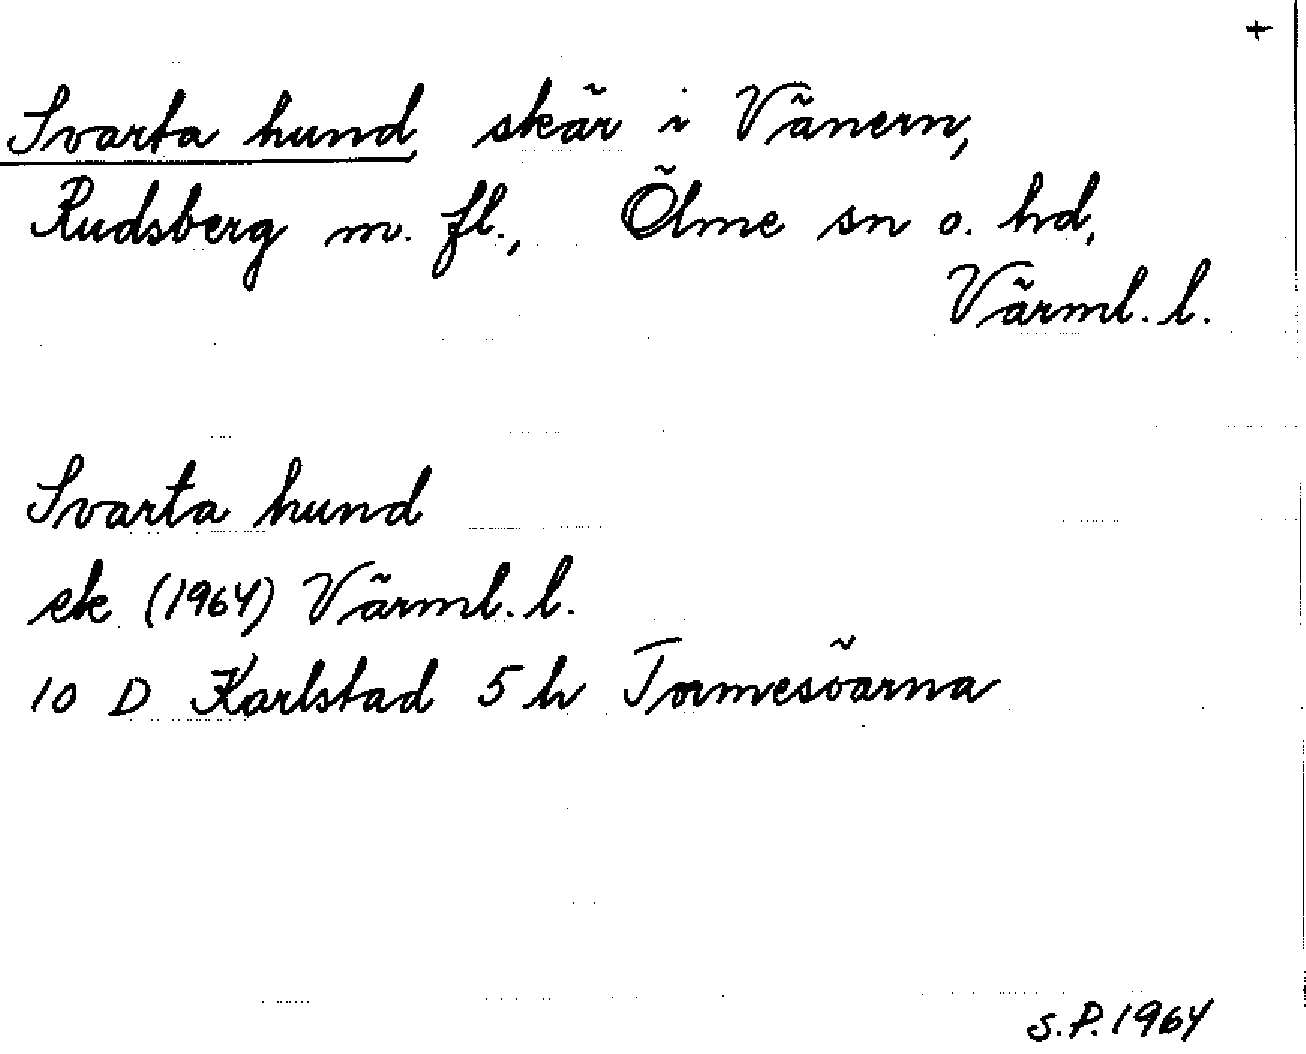 +
Svarta hund, skär i Vänern,
Rudsberg m. fl., Ölme sn o. hd,
Värml. l.
Svarta hund
ek (1964) Värml. l.
10 D Karlstad 5 h Tormesöarna
S.P. 1964